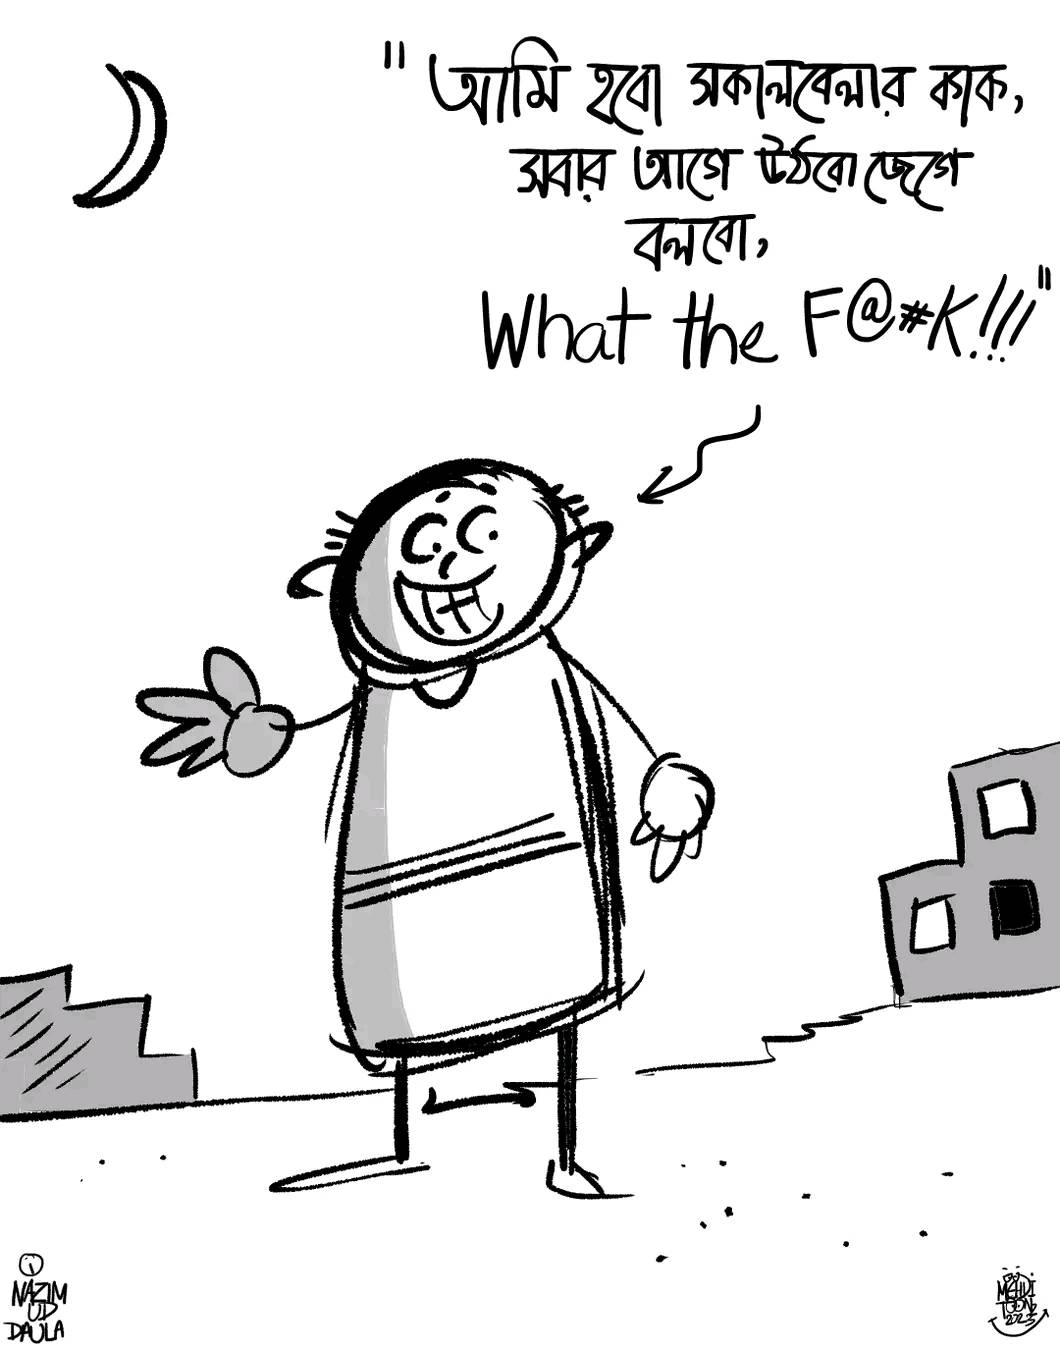 "আমি হবো সকালবেলার কাক,
সবার আগে উঠবো জেগে
বলবো,
What the F@#K!!!"
NAZIM
UD
DAULA
MEHDI
TOONS
2023